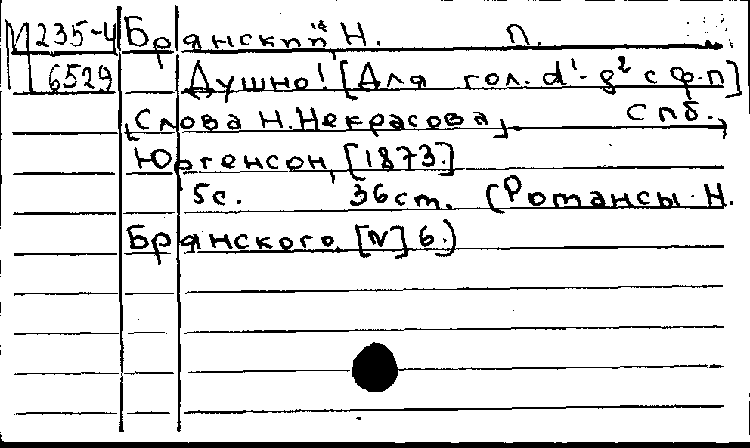 М 235-4 Брянский, Н. П.
6529 Душно! [Для гол. d¹-g² с ф.п]
[Слова Н. Некрасова]. Спб.,
Юргенсон, [1873.]
5с. 36ст. (Романсы Н.
Брянского. [N] 6.)